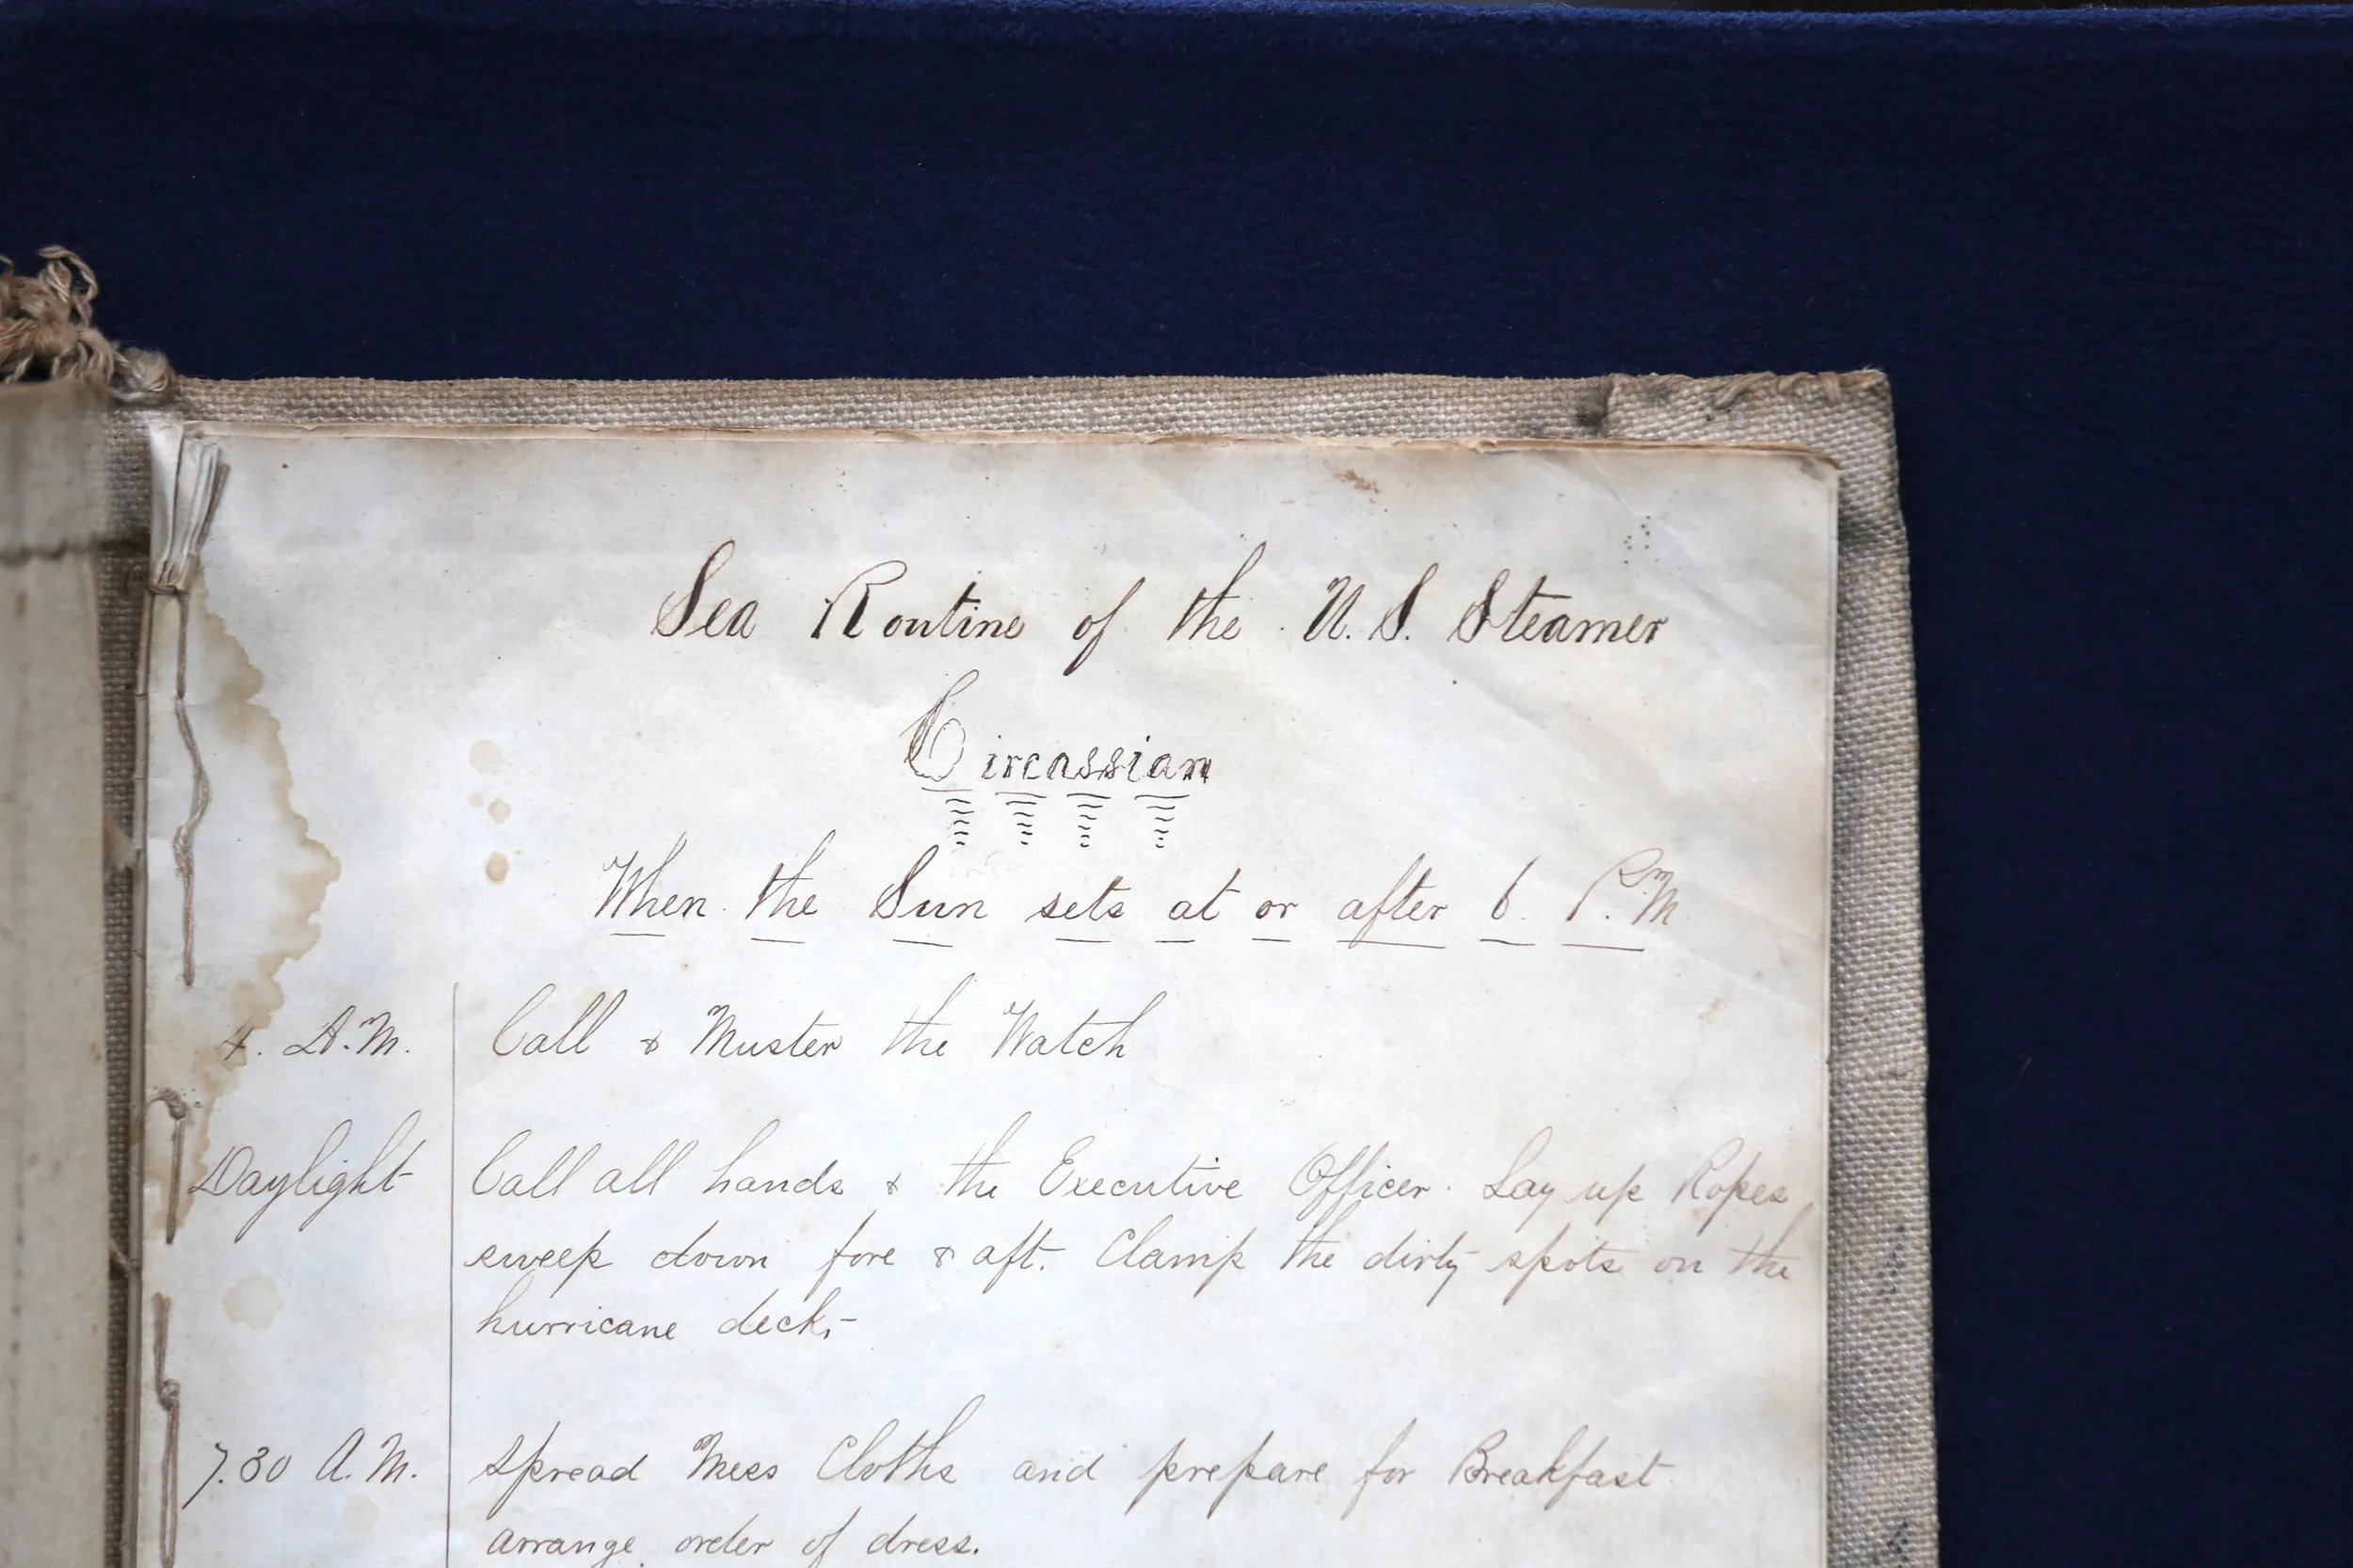 Sea Routine of the U. S. Steamer
Circassian
When the Sun sets at or after 6. P.M
4. A.M. Call & Muster the Watch
Daylight Call all hands & the Executive Officer. Lay up Ropes
sweep down fore & aft. Clamp the dirty spots on the
hurricane deck,
7.30 A.M. Spread Mess Cloths and prepare for Breakfast
arrange order of dress.